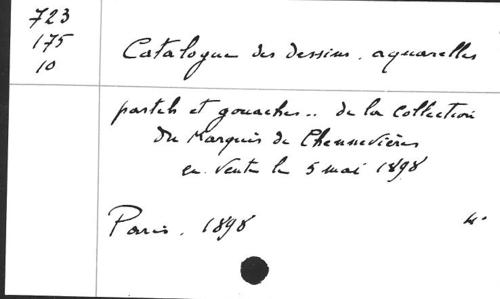 723
175
10
Catalogue des dessins, aquarelles
pastels et gouaches.. de la Collection
du Marquis de Chennevières
en vente le 5 mai 1898
Paris. 1898